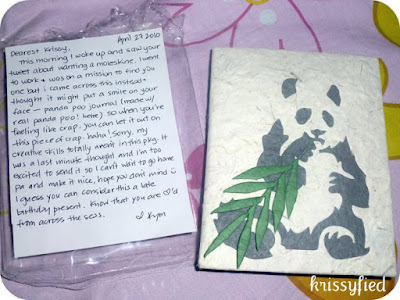 April 27 2010
Dearest Krissy,
This morning I woke up and saw your
tweet about wanting a moleskine. I went
to work & was on a mission to find you
one but i came across this instead.
thought it might put a smile on your
face — panda poo journal (made w/
real panda poo! hehe) so when you're
feeling like crap, you can let it out on
this piece of crap. haha! sorry, my
creative skills totally went in this pkg. It
was a last minute thought and I'm too
excited to send it so I can't wait to go home
and make it nice, hope you don't mind
I guess you can consider this a late
birthday present. Know that you are ♡'d
from across the seas.
♡ Kym
krissyfied